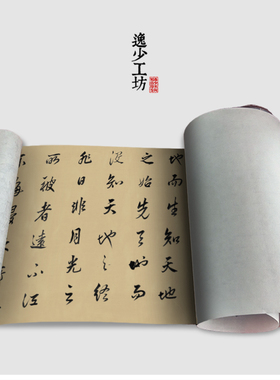 逸少工坊
地而生知天地
之始先天地而
没知天地之终
非日非月光之
所被者遠不江
不